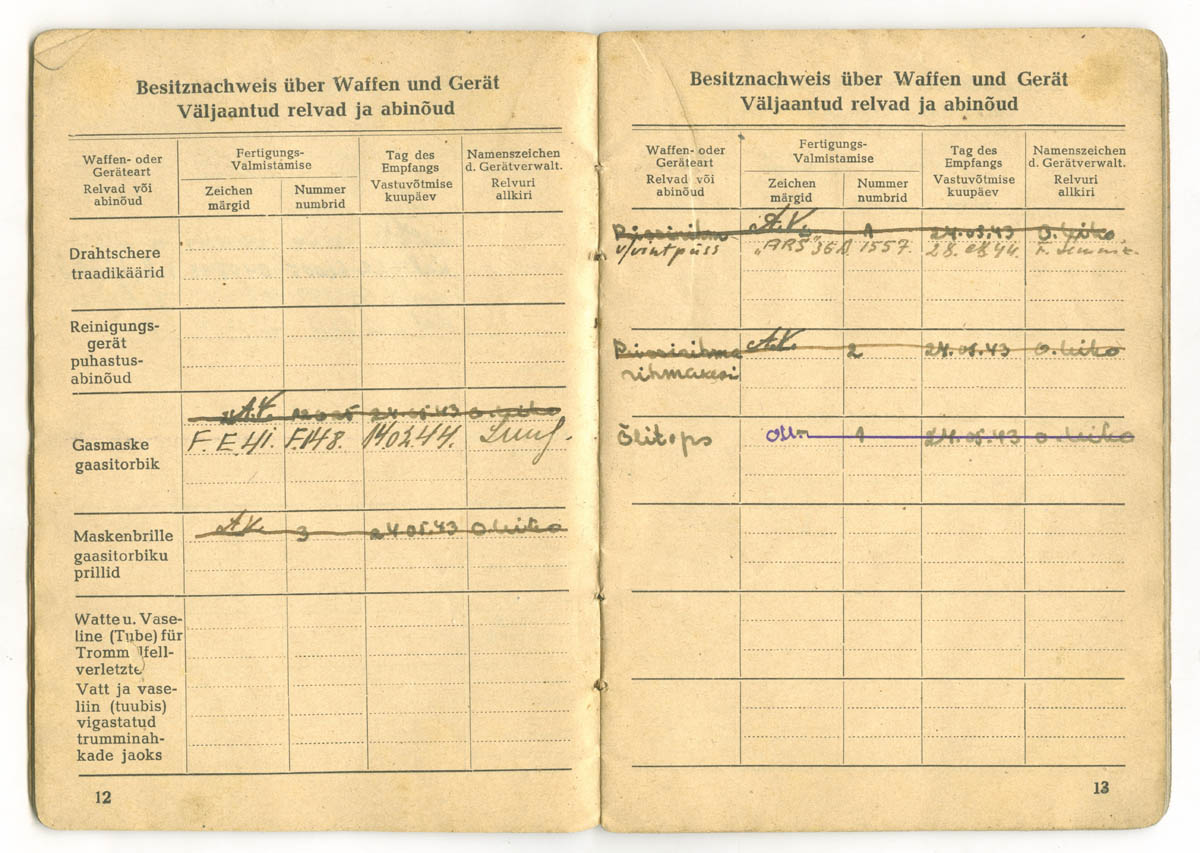 Besitznachweis über Waffen und Gerät
Väljaantud relvad ja abinõud
Waffen- oder
Geräteart
Relvad või
abinõud
Fertigungs-
Valmistamise
Zeichen
märgid
Nummer
numbrid
Tag des
Empfangs
Vastuvõtmise
kuupäev
Namenszeichen
d. Gerätverwalt.
Relvuri
allkiri
Drahtschere
traadikäärid
Reinigungs-
gerät
puhastus-
abinõud
A.V. 24.05.43 O. Leiko
Gasmaske
gaasitorbik
F. E. 41. F.148. 14.02.44.
Maskenbrille
gaasitorbiku
prillid
A.V. 3 24.05.43 O. Leiko
Watte u. Vase-
line (Tube) für
Tromm lfell-
verletzte
Vatt ja vase-
liin (tuubis)
vigastatud
trumminah-
kade jaoks
12
Besitznachweis über Waffen und Gerät
Väljaantud relvad ja abinõud
Waffen- oder
Geräteart
Relvad või
abinõud
Fertigungs-
Valmistamise
Zeichen
märgid
Nummer
numbrid
Tag des
Empfangs
Vastuvõtmise
kuupäev
Namenszeichen
d. Gerätverwalt.
Relvuri
allkiri
Püssirihm A.V. 1 24.05.43 O. Leiko
v/vintpüss "ARS" 1557 28.08.44.
Püssirihma A.V. 2 24.05.43 O. Leiko
Õlitops 1 24.05.43 O. Leiko
13